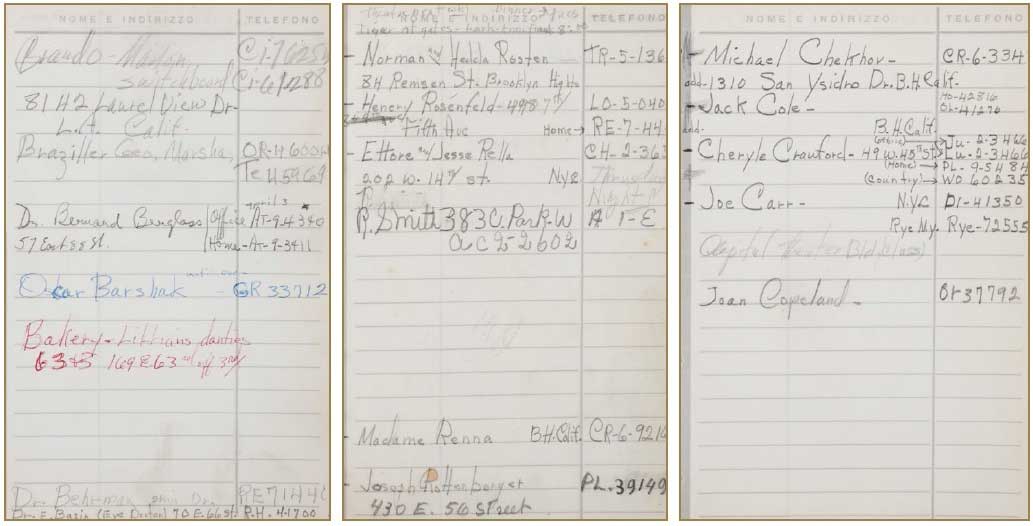 NOME E INDIRIZZO TELEFONO
Brando - Marlon Ci-76254
switchboard Ci-61088
8142 Laurel View Dr
L.A. Calif.
Braziller Geo, Marsha, OR-46004
Te 45964
april 3
Dr. Bernard Burglass Office AT-9-4340
57 East 88 St. Home-AT-9-3411
Oscar Barshak - GR 33712
Bakery - Lillians danties
6385 169 E 63rd off 3rd
Dr. Behrman skin Dr. RE 7144
Dr. E. Basin (Eve Dreton) 70 E. 66 St. R.H. 4-1700
NOME E INDIRIZZO TELEFONO
Tiger at gates -
- Norman and Hedda Rosten TR-5-136
84 Remsen St. Brooklyn Hights
- Henery Rosenfeld - 498 7th LO-5-040
Fifth Ave Home→ RE-7-44
- Ettore w/ Jesse Rella CH-2-363
202 W. 14th st. NYC
R. Smith 383 C. Park W A 1-E
ac 2-2602
- Madame Renna B.H. Calif. CR-6-921
- Joseph Rottenbergst PL. 39149
430 E. 56 Street
NOME E INDIRIZZO TELEFONO
- Michael Chekhov - CR-6-334
add-1310 San Ysidro Dr. B.H. Calif.
- Jack Cole - HO-42816
OL-41276
add. B.H. Calif.
- Cheryle Crawford - 49 W. 45th St Ju-2-3466
Lu-2-3466
(Home)→ PL-9-5484
(Country)→ WO 60235
- Joe Carr - N.Y.C DI-41350
Rye Ny. Rye-72555
Capitol Theater Bld (class)
Joan Copeland - Or 37792